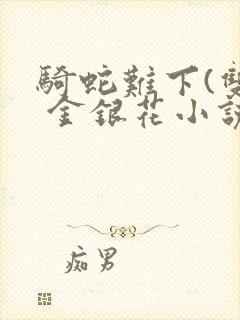 騎蛇難下(雙
金銀花小說
痴男